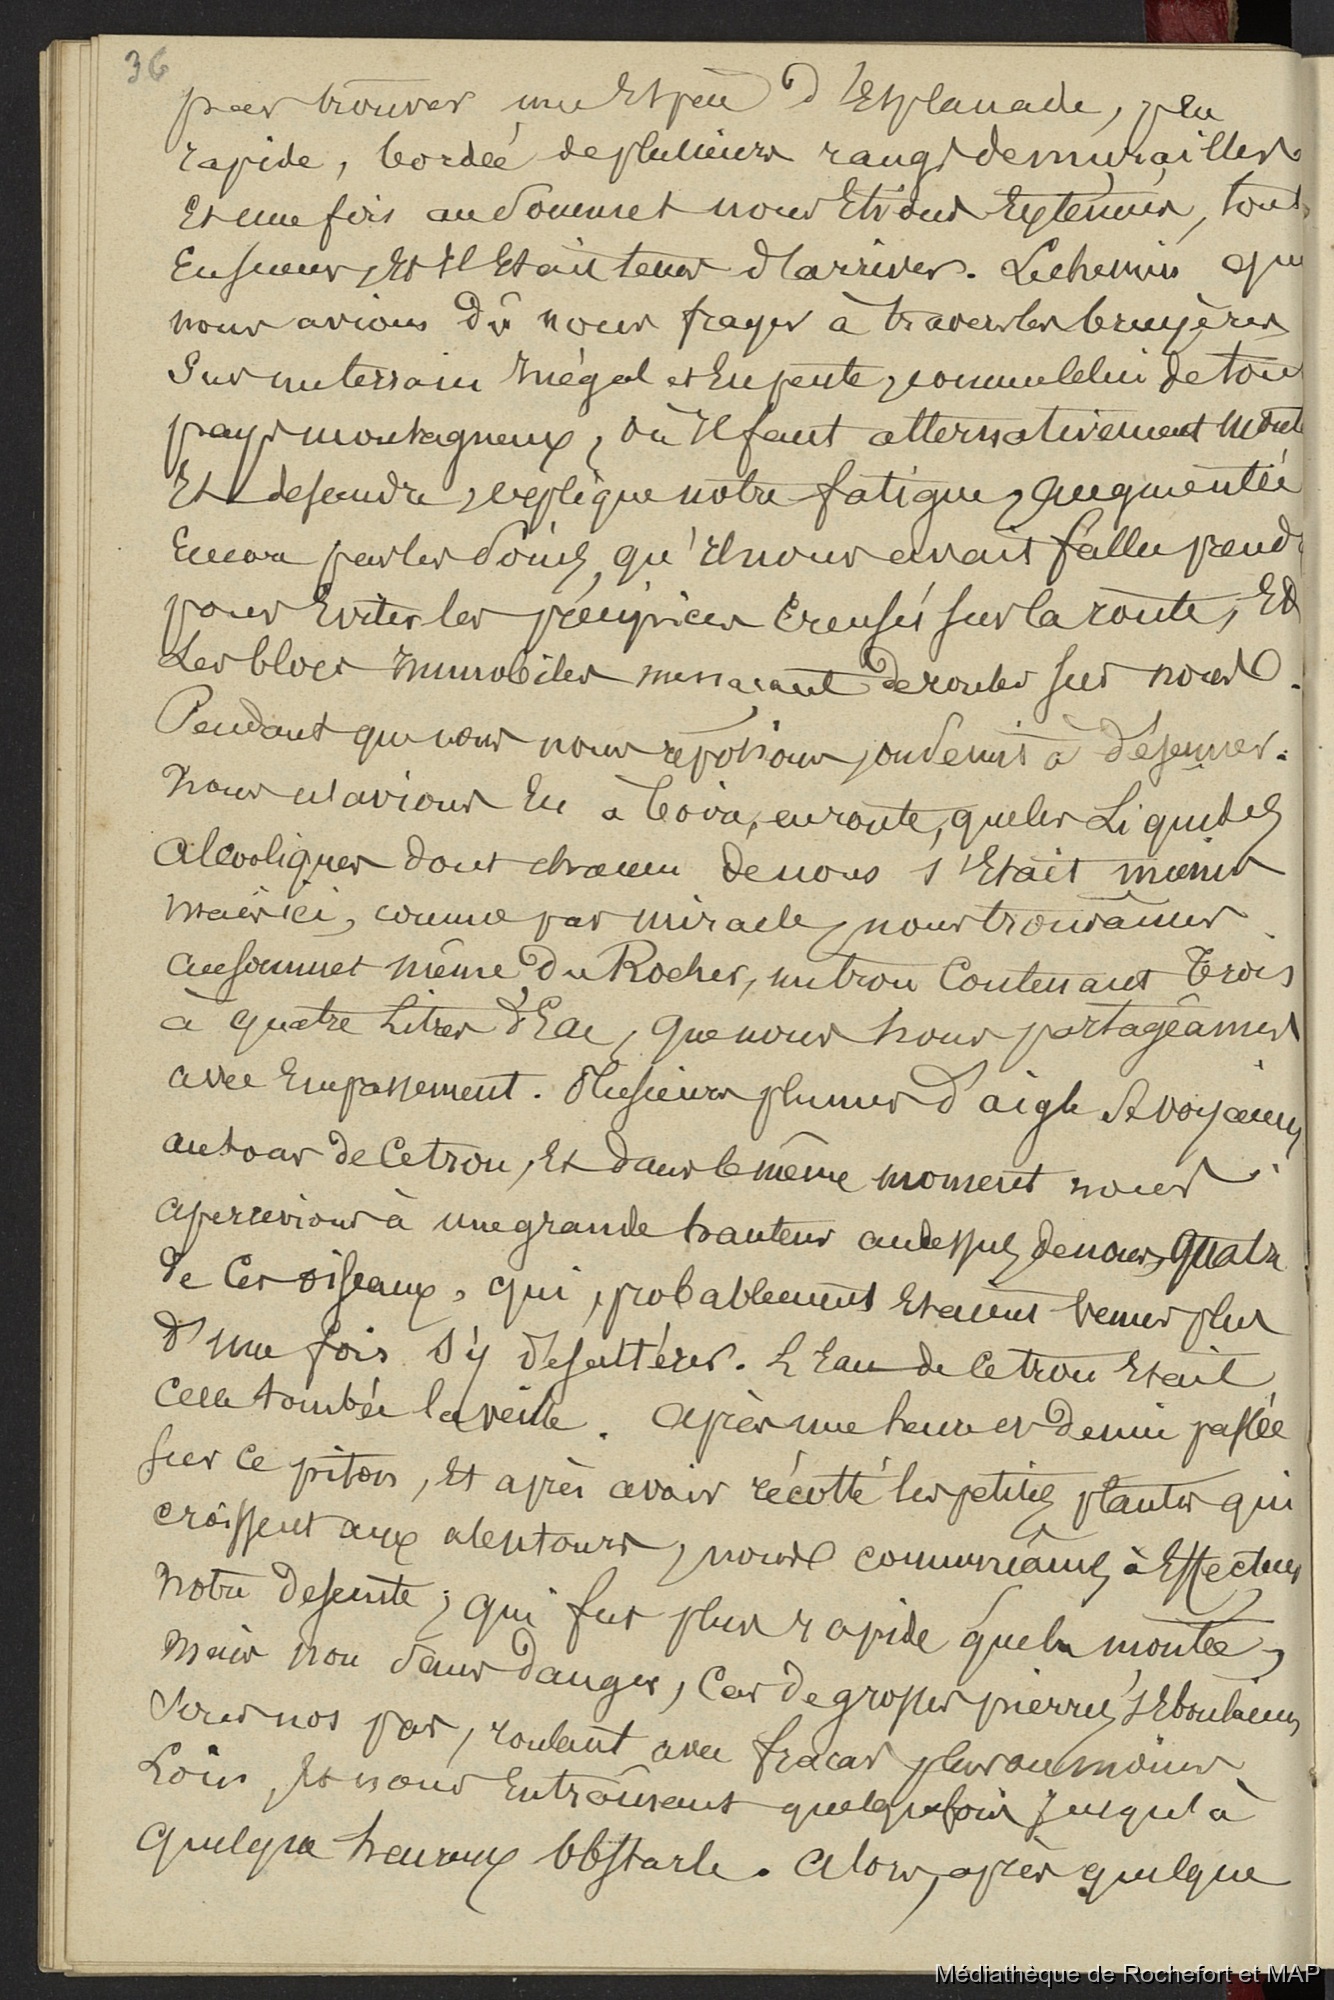 36
par trouver une Espèce d'Esplanade, peu
rapide, bordée de plusieurs rangs de murailles
Et une fois au Sommet nous Etions Exténués, tout
En sueur, Et Il Etait tems d'arriver. Le chemin que
nous avions dû nous frayer à travers les bruyères
Sur un terrain Inégal et En pente, comme celui de tout
pays montagneux, où Il faut alternativement monter
Et desendre, explique notre fatigue, Augmentée
Encore par les Soins, qu'Il nous avait fallu prendre
pour Eviter les précipices Creusés sur la route, Et
Les blocs Immobiles menaçant de rouler sur nous.
Pendant que nous nous reposions, on se mit à déjeuner.
Nous n'avions Eu à boire, en route, que les Liquides
Alcooliques dont chacun de nous s'Etait munis
mais ici, comme par miracle, nous trouvâmes
au sommet même du Rocher, un trou Contenant Trois
à quatre Litres d'Eau, que nous nous partageâmes
avec Empressement. Plusieurs plumes d'aigle se voyaient
autour de Ce trou, Et dans le même moment nous
apercevions à une grande hauteur au dessus de nous, quatre
de Ces oiseaux, qui, probablement Etaient venus plus
d'une fois s'y désaltérer. L'Eau de Ce trou Etait
Celle tombée la veille. Après une heure et demie passée
sur Ce piton, Et après avoir récolté les petites plantes qui
croissent aux alentours, nous commençâmes à Effectuer
Notre desente, qui fut plus rapide que la montée,
mais non sans danger, Car de grosses pierres s'Eboulaient
Sous nos pas, roulant avec fracas plus ou moins
Loin, Et nous Entraînant quelquefois jusqu'à
quelque heureux Obstacle. Alors, après quelque
Médiathèque de Rochefort et MAP